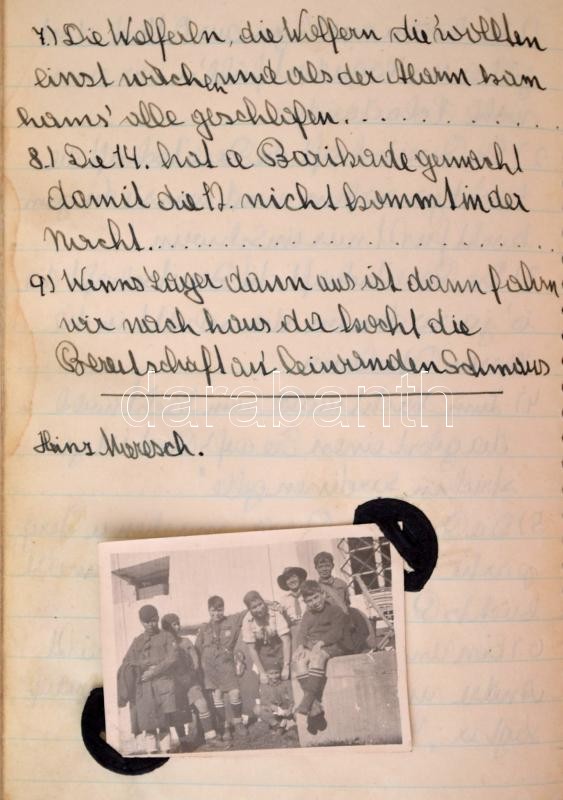 7.) Die Wolferln, die Wolfern die wollten
einst wachen und als der Alarm kam
hams' alle geschlafen..............
8.) Die 14. hat a Barikade gemacht
damit die 12. nicht kommt in der
Nacht..............................
9.) Wenns Lager dann aus ist dann fahrn
wir nach haus da kocht die
Bereitschaft an' Schmaus
darabanth
Heinz Maresch.